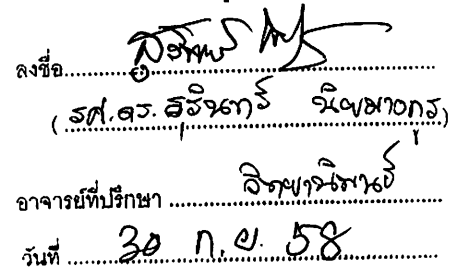 ลงชื่อ สุรินทร์
( รศ.ดร. สุรินทร์ นิยมางกูร )
อาจารย์ที่ปรึกษา วิทยานิพนธ์
วันที่ 30 ก.ย. 58